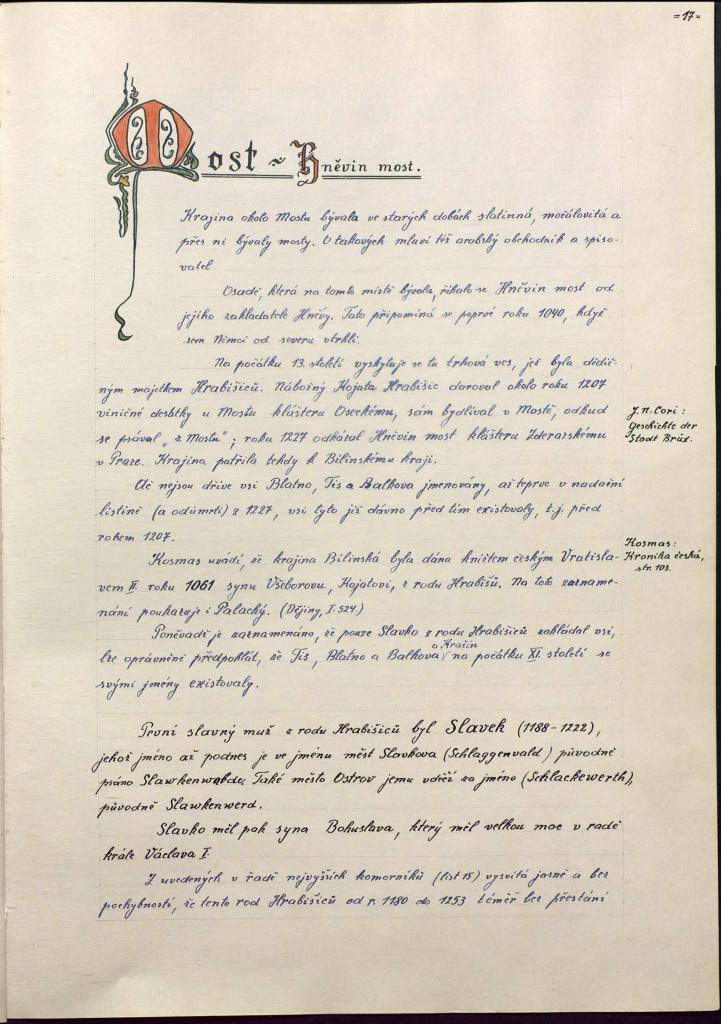 =17=
Most ~ Hněvin most.
Krajina okolo Mostu bývala ve starých dobách slatinná, močálovitá a
přes ni bývaly mosty. O takových mluví též arabský obchodník a spiso-
vatel
Osadě, která na tomto místě bývala, říkalo se Hněvin most od
jejího zakladatele Hněvy. Tato připomíná se poprvé roku 1040, když
sem Němci od severu vtrhli.
Na počátku 13. století vyskytuje se tu trhová ves, jež byla dědič-
ným majetkem Hrabišiců. Nábožný Kojata Hrabišic daroval okolo roku 1207
viničné desátky u Mostu klášteru Oseckému, sám bydlíval v Mostě, odkud
se psával „z Mostu"; roku 1227 odkázal Hněvin most klášteru Zderazskému
v Praze. Krajina patřila tehdy k Bílinskému kraji.
J. N. Cori:
Geschichte der
Stadt Brüx.
Ač nejsou dříve vsi Blatno, Tis a Balkova jmenovány, až teprve v nadační
listině (a odúmrti) z 1227, vsi tyto již dávno před tím existovaly, t.j. před
rokem 1207.
Kosmas uvádí, že krajina Bílinská byla dána knížtem českým Vratisla-
vem II. roku 1061 synu Všeborovu, Kojatovi, z rodu Hrabišů. Na toto zazname-
nání poukazuje i Palacký. (Dějiny, I. 524.)
Kosmas:
Kronika česká,
str. 103.
Poněvadž je zaznamenáno, že pouze Slavko z rodu Hrabišiců zakládal vsi,
lze oprávněně předpokládat, že Tis, Blatno a Balkova a Krašín na počátku XI. století se
svými jmény existovaly.
První slavný muž z rodu Hrabišiců byl Slavek (1188-1222),
jehož jméno až podnes je ve jménu měst Slavkova (Schlaggenvald) původně
psáno Slawkenwalde. Také město Ostrov jemu vděčí za jméno (Schlackewerth),
původně Slawkenwerd.
Slavko měl pak syna Bohuslava, který měl velkou moc v radě
krále Václava I.
Z uvedených v řadě nejvyšších komorníků (list 15) vysvitá jasně a bez
pochybnosti, že tento rod Hrabišiců od r. 1180 do 1253 téměř bez přestání